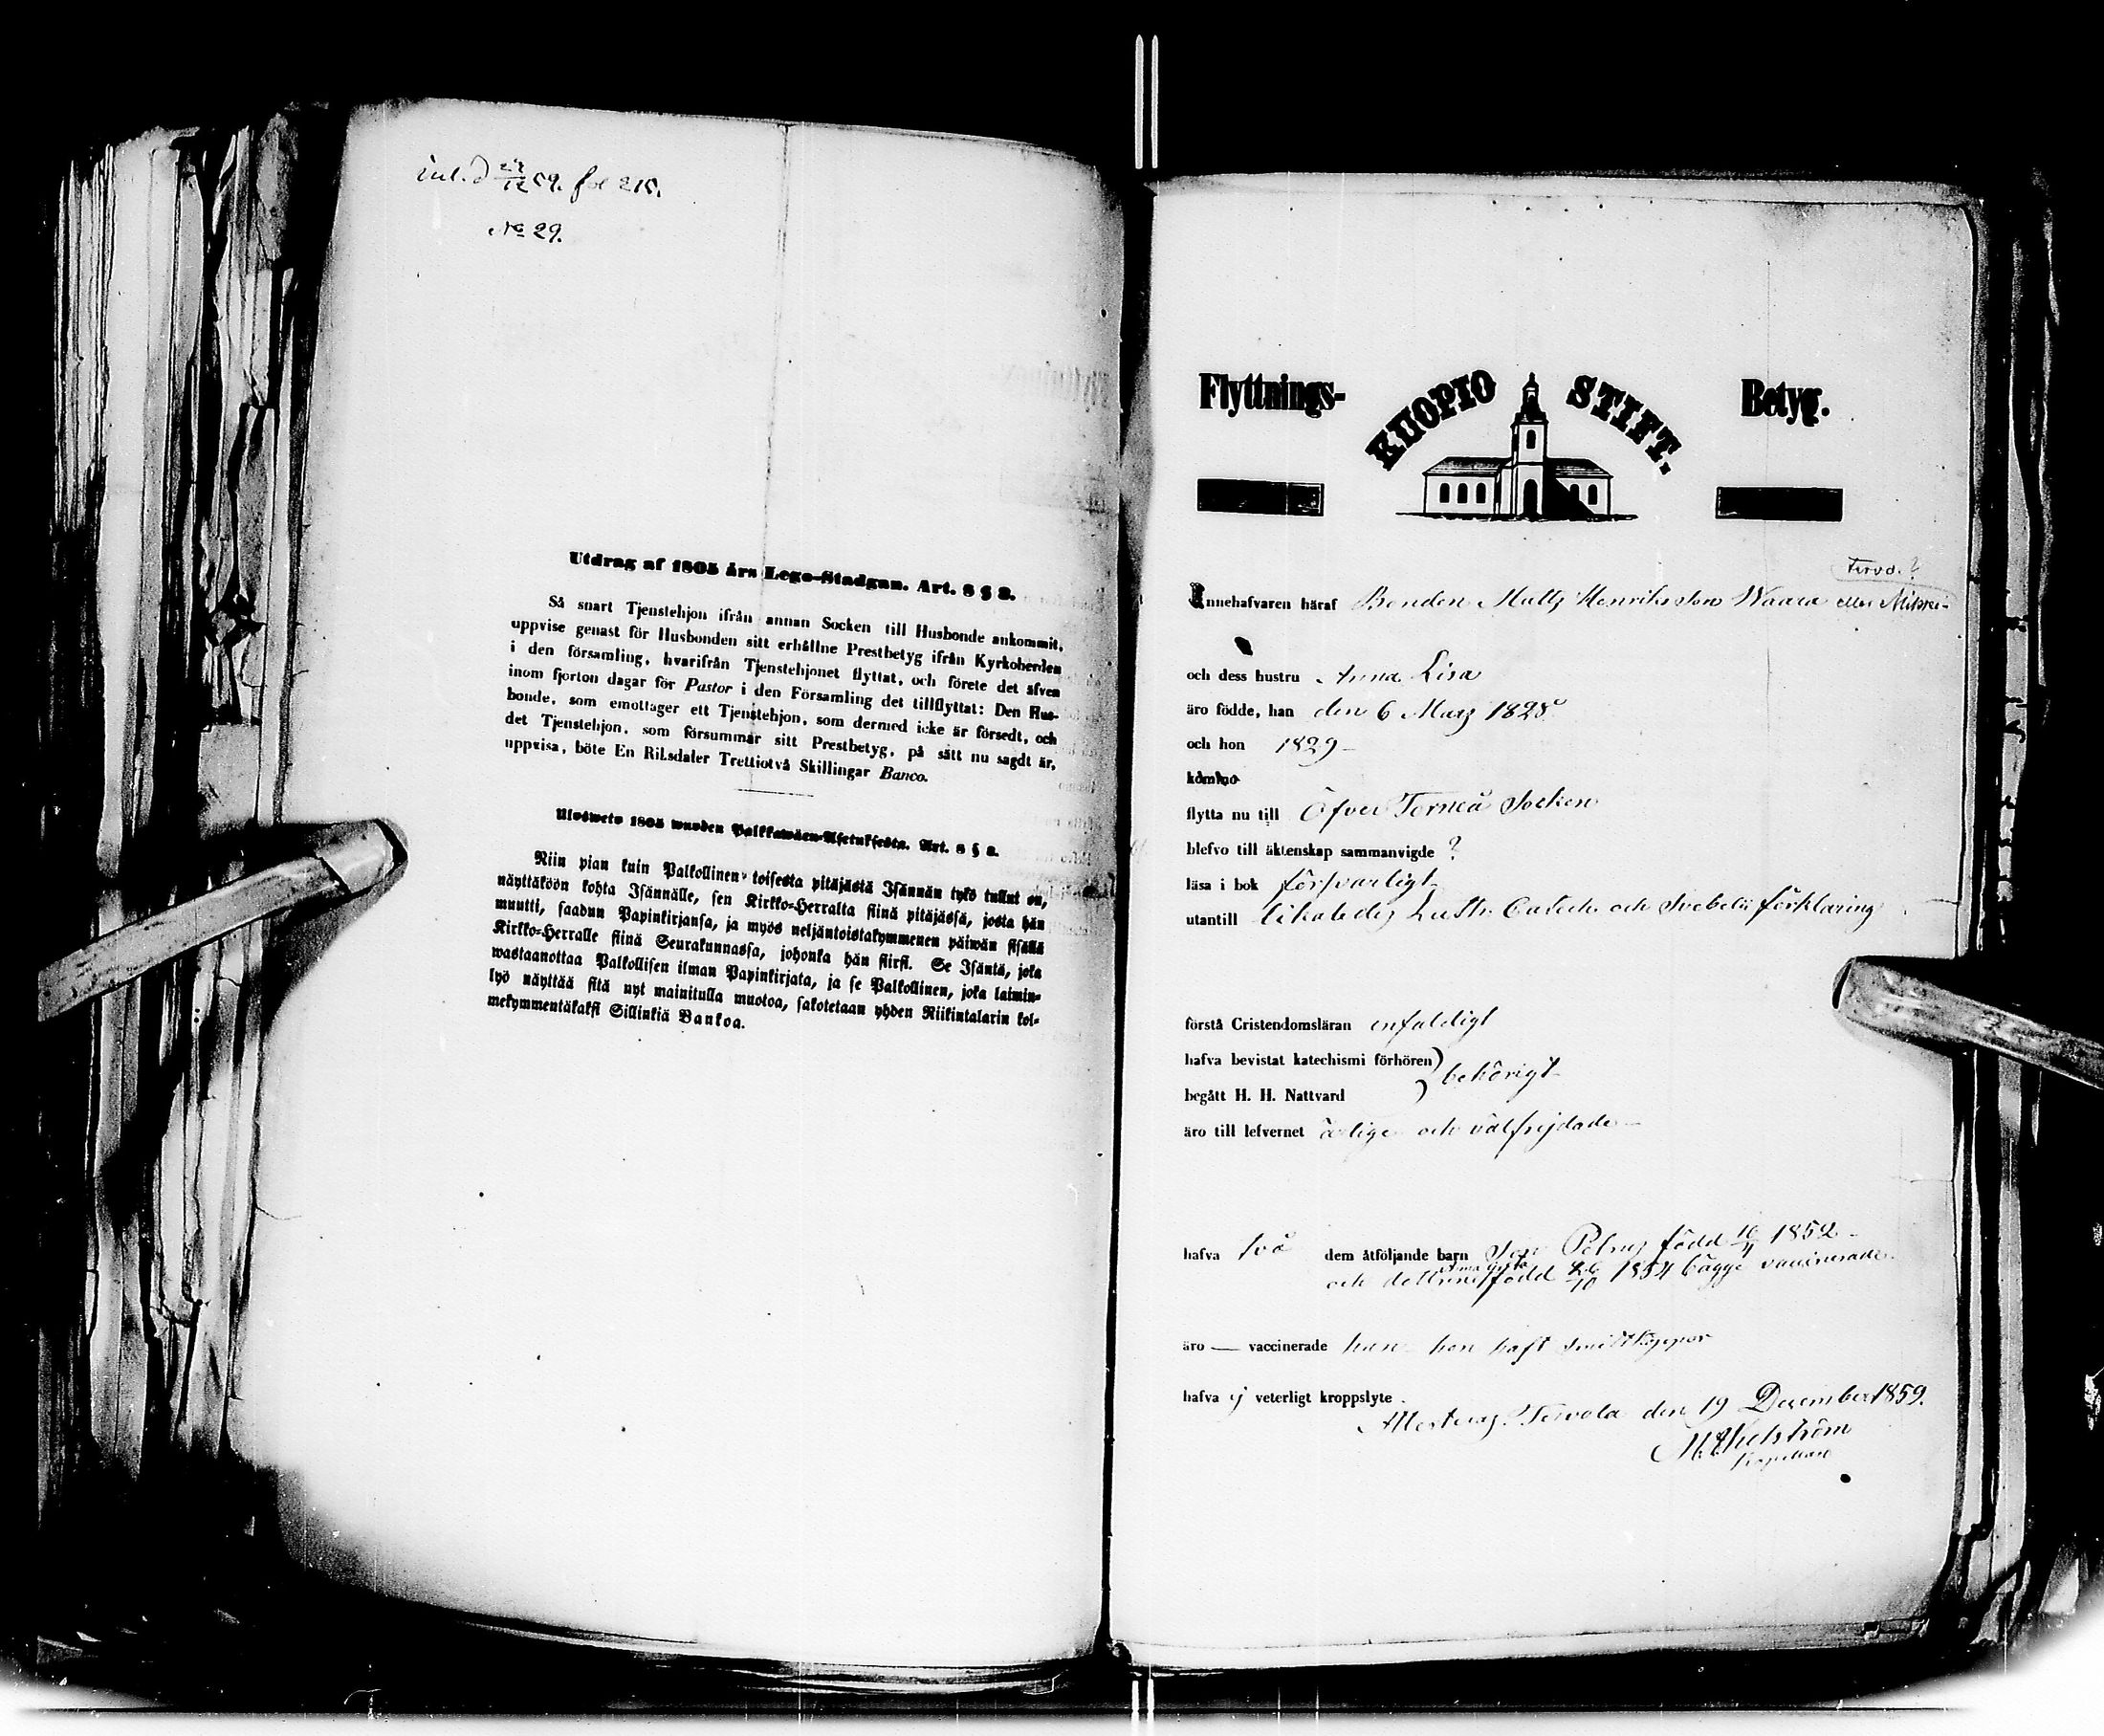 inl. d 27/12 59. fol 215.
No 29.
Utdrag af 1805 års Lego-Stadgan. Art. 8 § 8.
Så snart Tjenstehjon ifrån annan Socken till Husbonde ankommit,
uppvise genast för Husbonden sitt erhållne Prestbetyg ifrån Kyrkoherden
i den församling, hvarifrån Tjenstehjonet flyttat, och förete det äfven
inom fjorton dagar för Pastor i den Församling det tillflyttat: Den Hus-
bonde, som emottager ett Tjenstehjon, som dermed icke är försedt, och
det Tjenstehjon, som försummar sitt Prestbetyg, på sätt nu sagdt är,
uppvisa, böte En Riksdaler Trettiotvå Skillingar Banco.
Ulosweto 1805 wuoden Palkkawäen-Asetuksesta. Art. 8 § 8.
Niin pian kuin Palkollinen toisesta pitäjästä Isännän tykö tullut on,
näyttäköön kohta Isännälle, sen Kirkko-Herralta siinä pitäjässä, josta hän
muutti, saadun Papinkirjansa, ja myös neljäntoistakymmenen päiwän sisällä
Kirkko-Herralle siinä Seurakunnassa, johonka hän siirsi. Se Isäntä, joka
wastaanottaa Palkollisen ilman Papinkirjata, ja se Palkollinen, joka laimin-
lyö näyttää sitä nyt mainitulla muotoa, sakotetaan yhden Riikintalarin kol-
mekymmentäkaksi Sillinkiä Bankoa.
Flyttnings- KUOPIO STIFT. Betyg.
Innehafvaren häraf Bonden Matts Henriksson Waara eller Mikko-
och dess hustru Anna Lisa
äro födde, han den 6 Mars 1828
och hon 1829
flytta nu till Öfver Torneå Socken
blefvo till äktenskap sammanvigde ?
läsa i bok försvarligt
utantill likaledes Luth: Catech: och Svebelii förklaring
förstå Cristendomsläran enfaldigt
hafva bevistat katechismi förhören
behörigt
begått H. H. Nattvard
äro till lefvernet ärlige och välfrejdade
hafva två dem åtföljande barn Son Petrus född 16/4 1852
och dottren född 26/10 1854 bägge vaccinerade
äro — vaccinerade han hon haft smittkoppor
hafva ej veterligt kroppslyte.
Attesteras: Tervola den 19 December 1859.
Kapellan